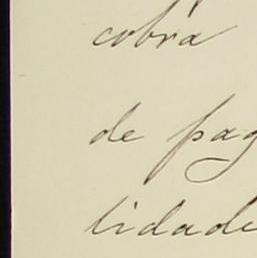 cobra
de pag
tidade